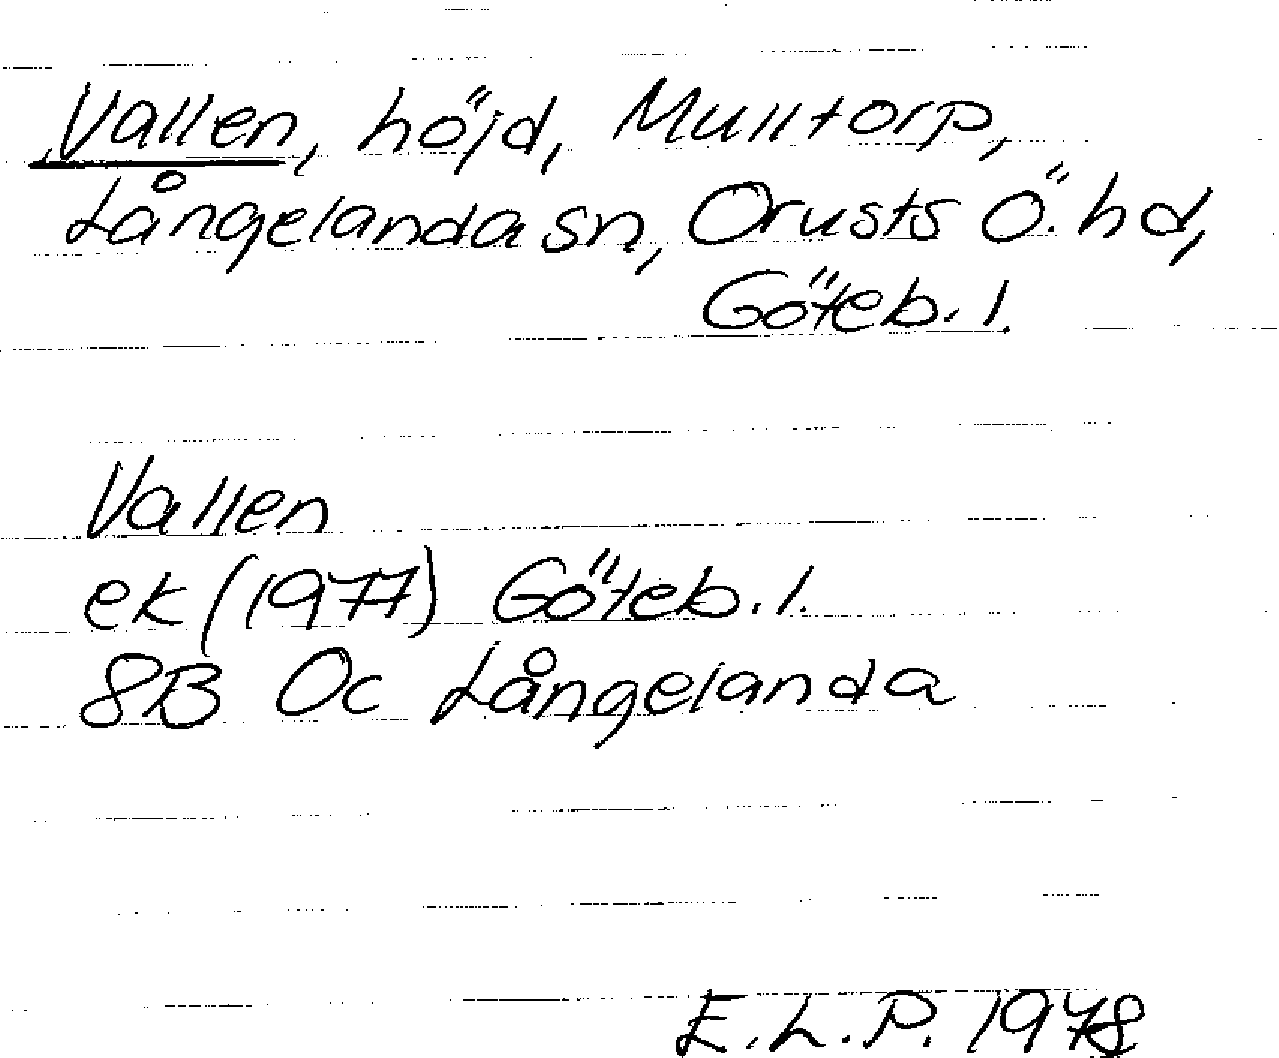 Vallen, höjd, Mulltorp,
Långelanda sn, Orusts Ö. hd,
Göteb. l.
Vallen
ek (1977) Göteb. l.
8B 0c Långelanda
E.L.P. 1978